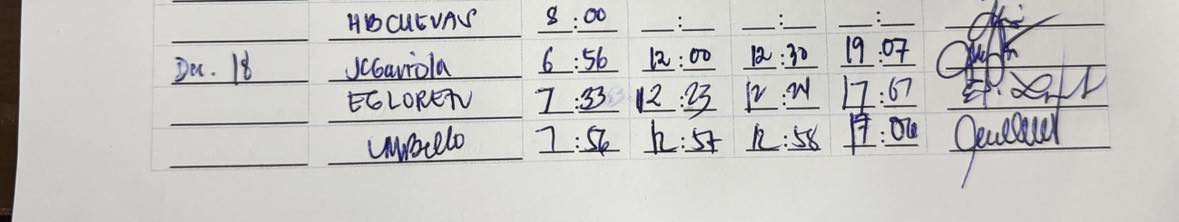 HBCUEVAS 8:00 __:__ __:__ __:__
Dec. 18 JCGaviola 6:56 12:00 12:30 19:07
EGLOREN 7:33 12:23 12:24 17:07
7:56 12:57 12:58 17:06